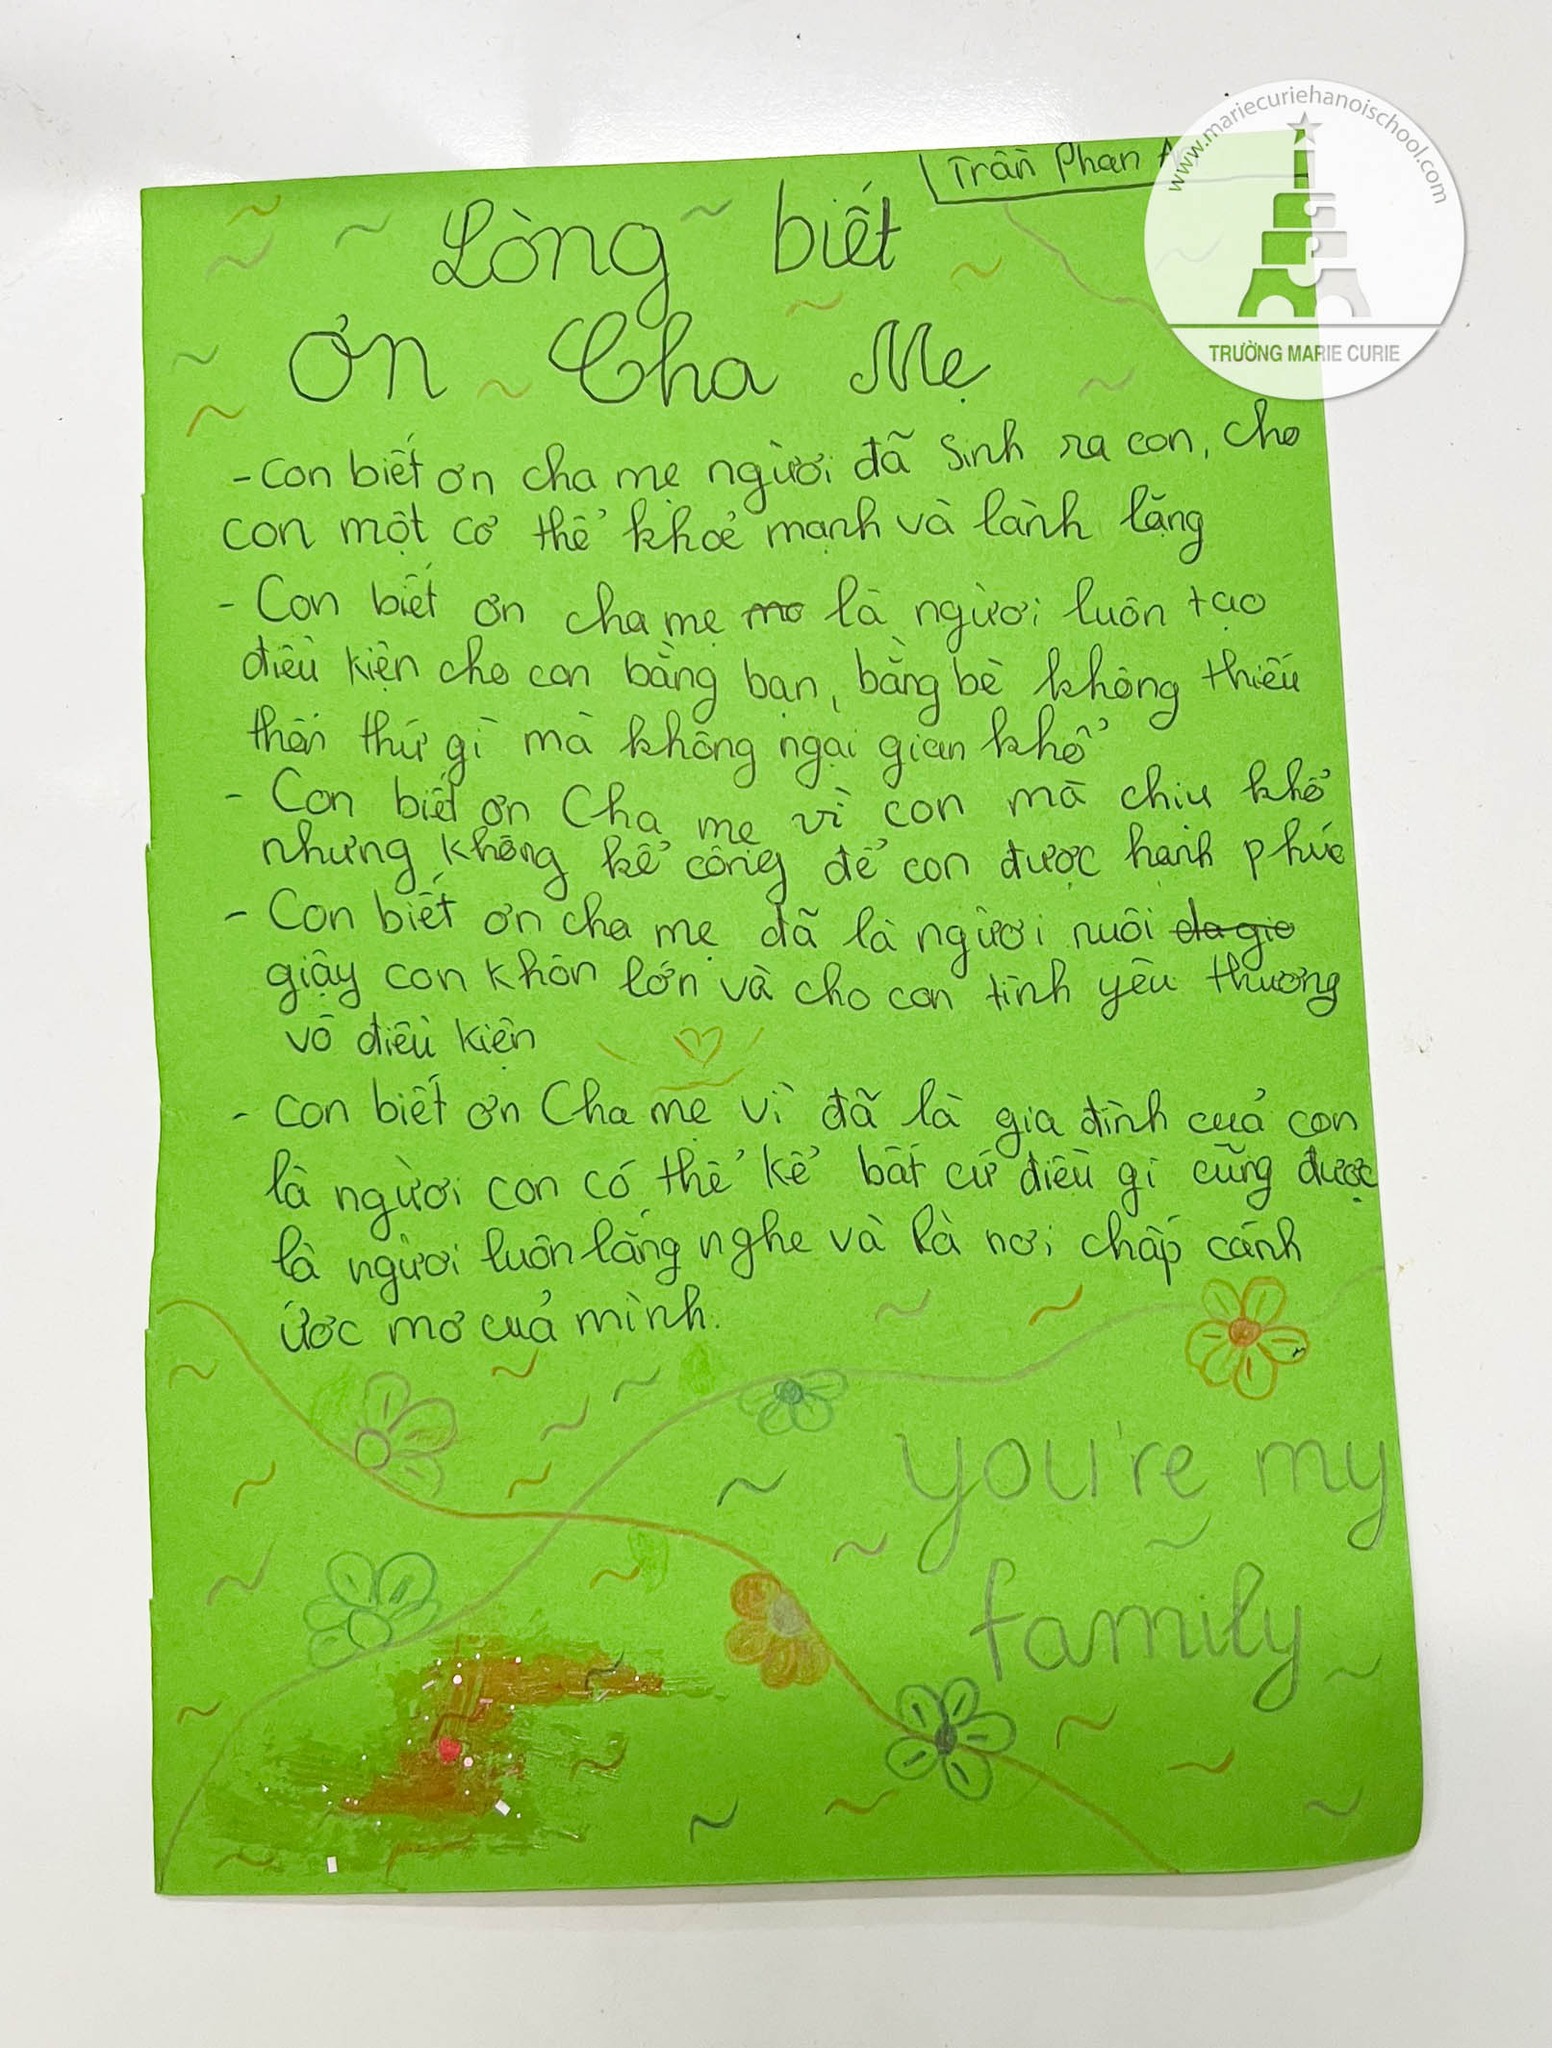 Trần Phan
www.mariecuriehanoischool.com
TRƯỜNG MARIE CURIE
Lòng biết
ơn Cha Mẹ
- Con biết ơn cha mẹ người đã sinh ra con, cho
con một cơ thể khoẻ mạnh và lành lặng
- Con biết ơn cha mẹ là người luôn tạo
điều kiện cho con bằng bạn, bằng bè không thiếu
thốn thứ gì mà không ngại gian khổ
- Con biết ơn Cha mẹ vì con mà chịu khổ
nhưng không kể công để con được hạnh phúc
- Con biết ơn cha mẹ đã là người nuôi
giậy con khôn lớn và cho con tình yêu thương
vô điều kiện
- Con biết ơn Cha mẹ vì đã là gia đình cuả con
là người con có thể kể bất cứ điều gì cũng được
là người luôn lắng nghe và là nơi chấp cánh
ước mơ cuả mình.
you're my
family